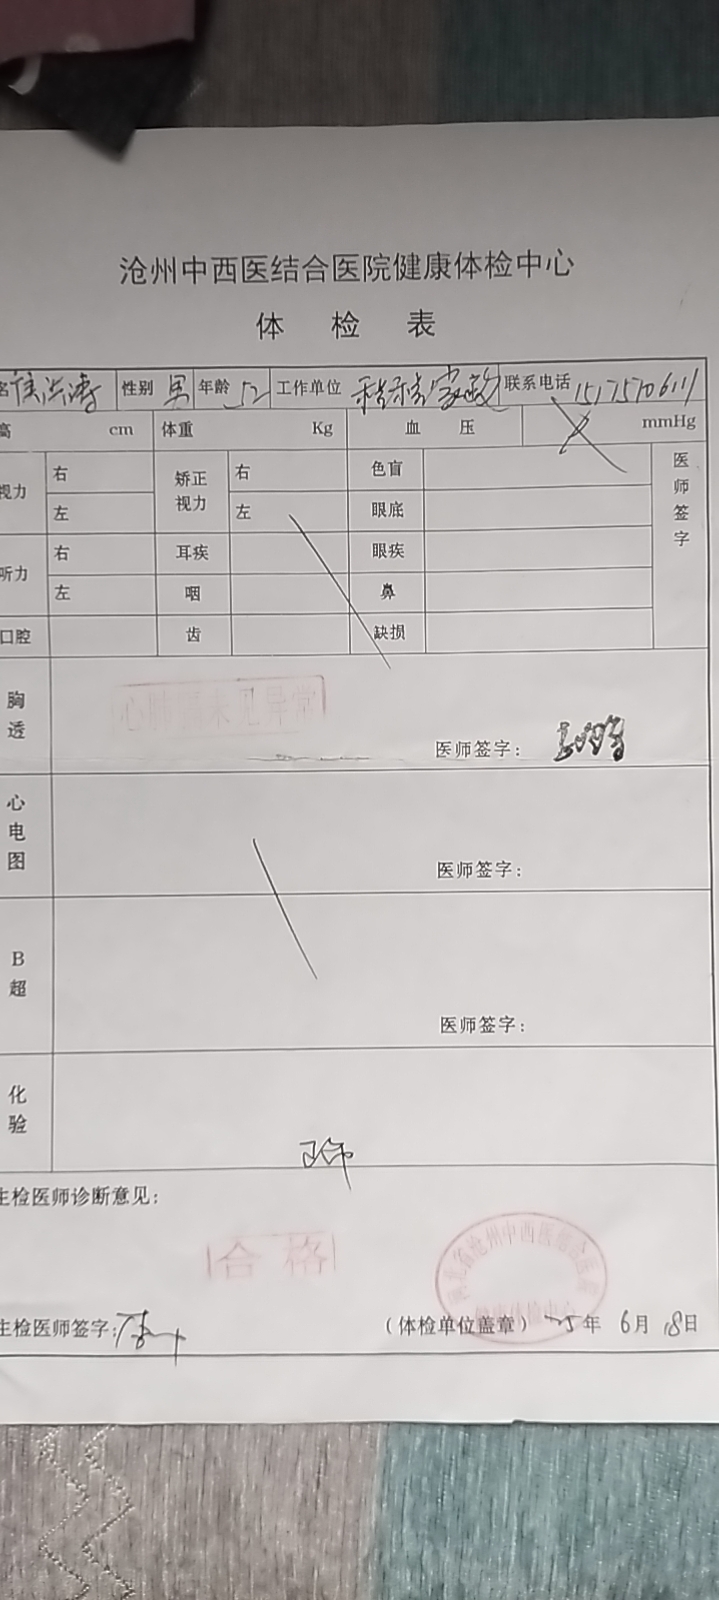 沧州中西医结合医院健康体检中心
体 检 表
名 侯洪涛 性别 男 年龄 52 工作单位 家政 联系电话 15175706111
高 cm 体重 Kg 血 压 mmHg
视力 右 矫正视力 右 色盲 医师签字
左 左 眼底
听力 右 耳疾 眼疾
左 咽 鼻
口腔 齿 缺损
胸透 心肺膈未见异常
医师签字:
心电图
医师签字:
B超
医师签字:
化验
主检医师诊断意见:
合格
主检医师签字: (体检单位盖章) 25年 6月 18日
河北省沧州中西医结合医院
健康体检中心